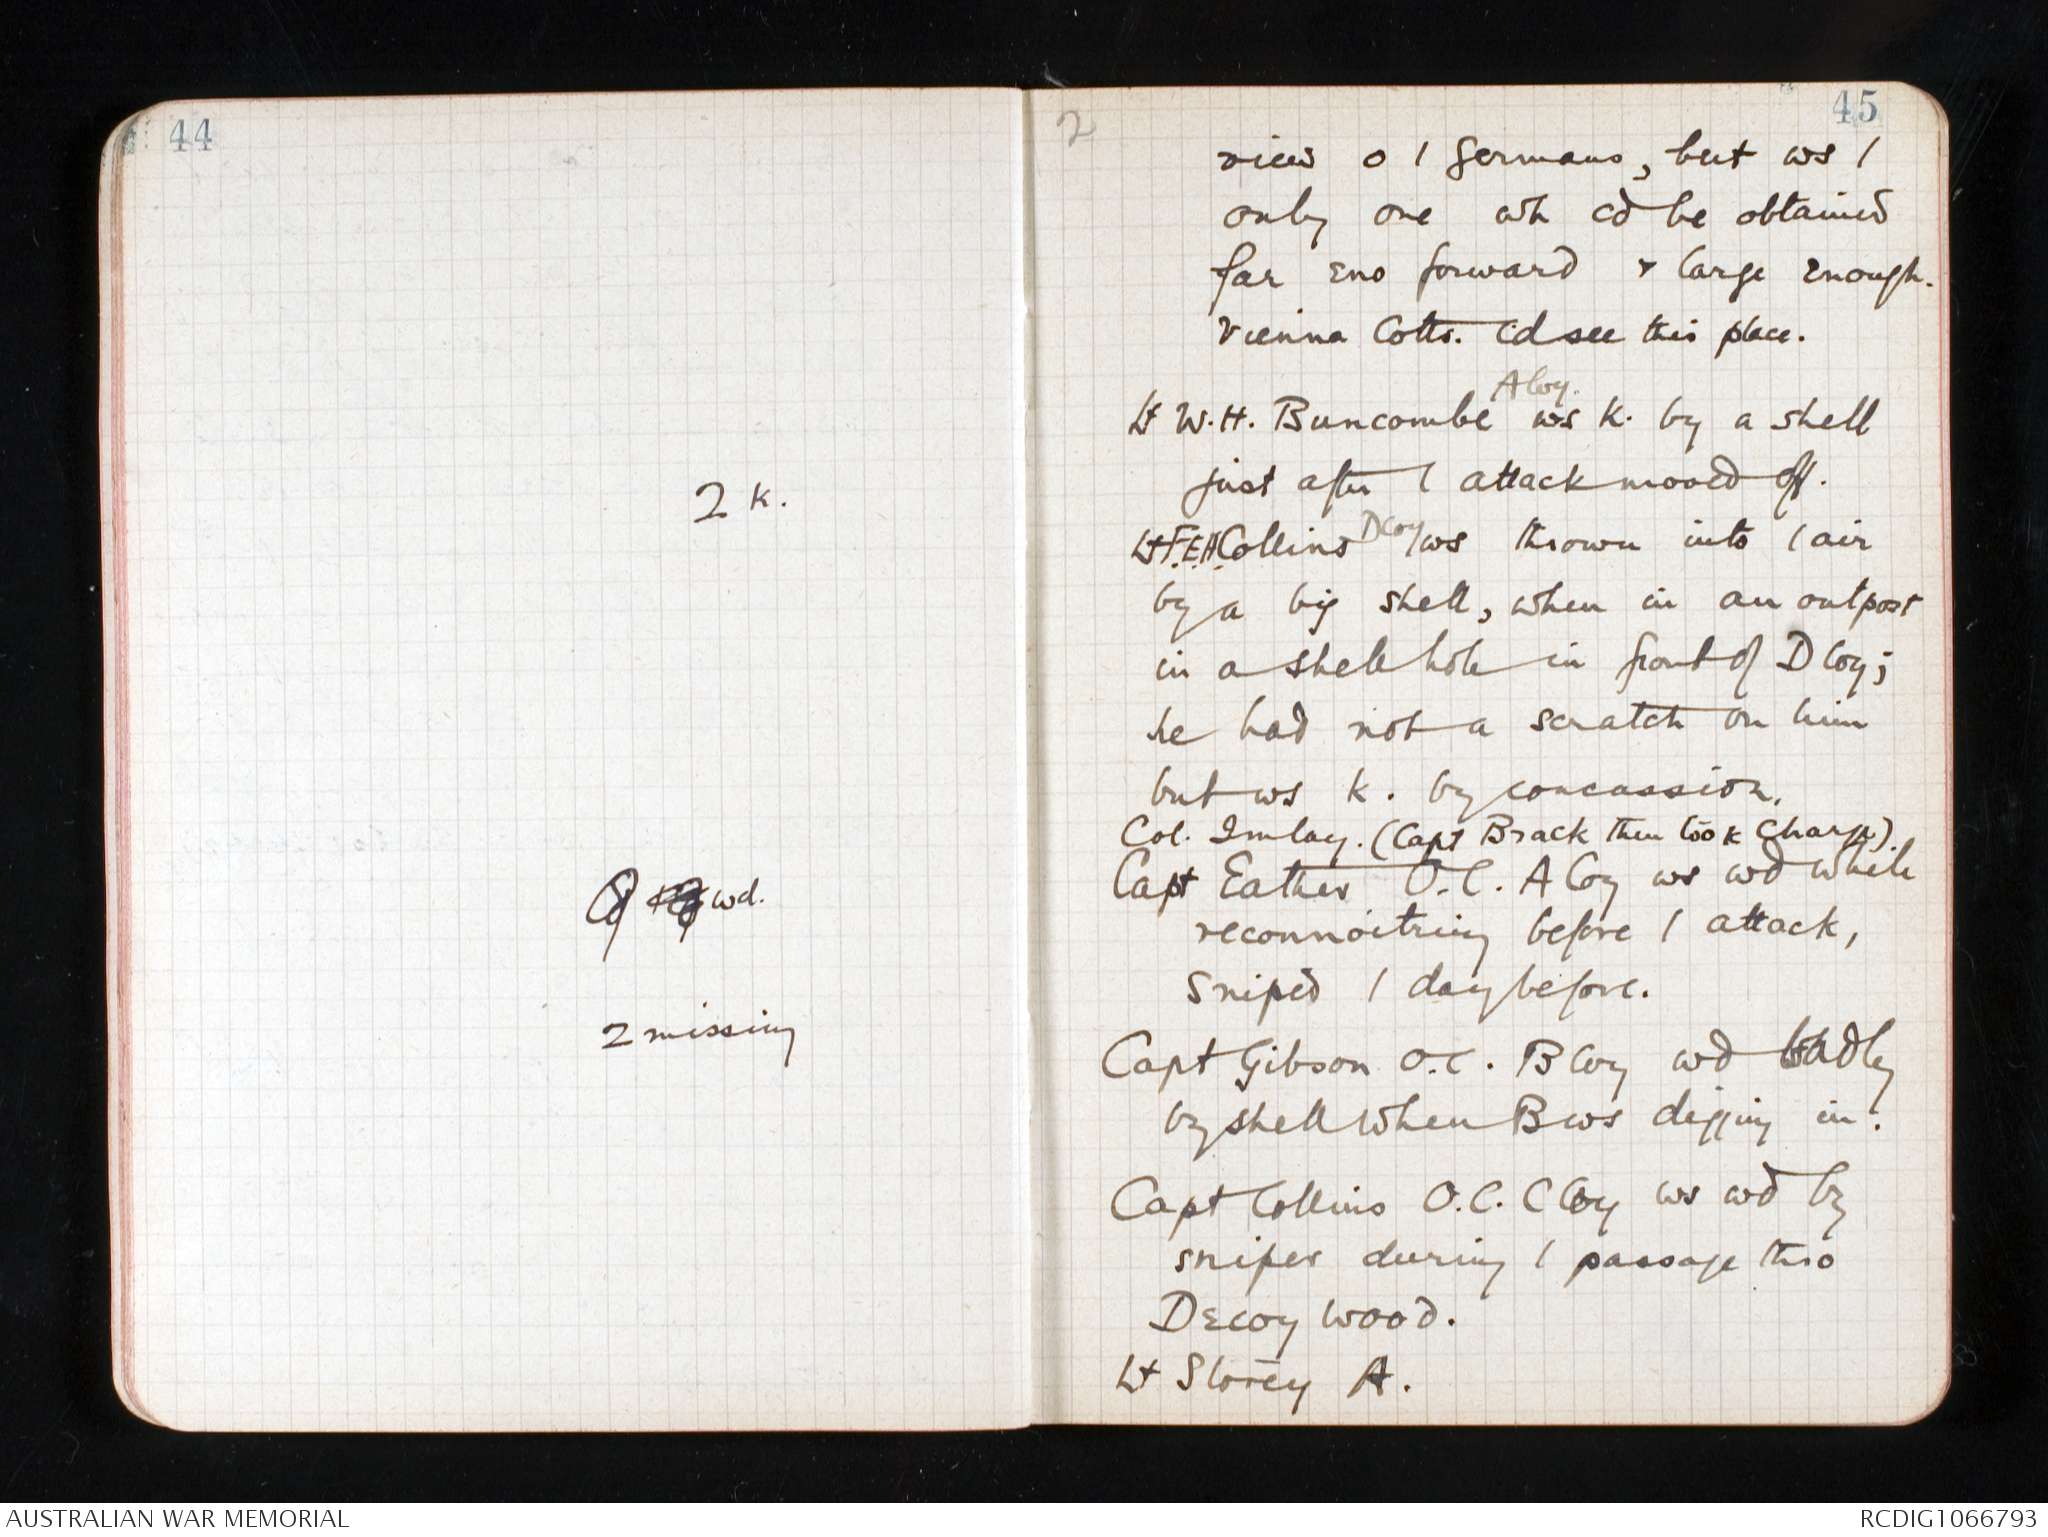 44
2 k.
wd.
2 missing
2
45
view o / Germans, but ws /
only one wh cd be obtained
far eno forward & large enough.
Vienna Cotts. cd see this place.
A Coy.
Lt W.H. Buncombe ws k. by a shell
just after / attack moved off.
D Coy
Lt F.E.H. Collins ws thrown into / air
by a big shell, when in an outpost
in a shell hole in front of D Coy;
he had not a scratch on him
but ws k. by concussion.
Col. Imlay. (Capt Brack then took charge).
Capt Eather O.C. A Coy ws wd while
reconnoitring before / attack,
sniped / day before.
Capt Gibson O.C. B Coy wd badly
by shell when B ws digging in.
Capt Collins O.C. C Coy ws wd by
sniper during / passage thro
Decoy Wood.
Lt Storey A.
AUSTRALIAN WAR MEMORIAL
RCDIG1066793